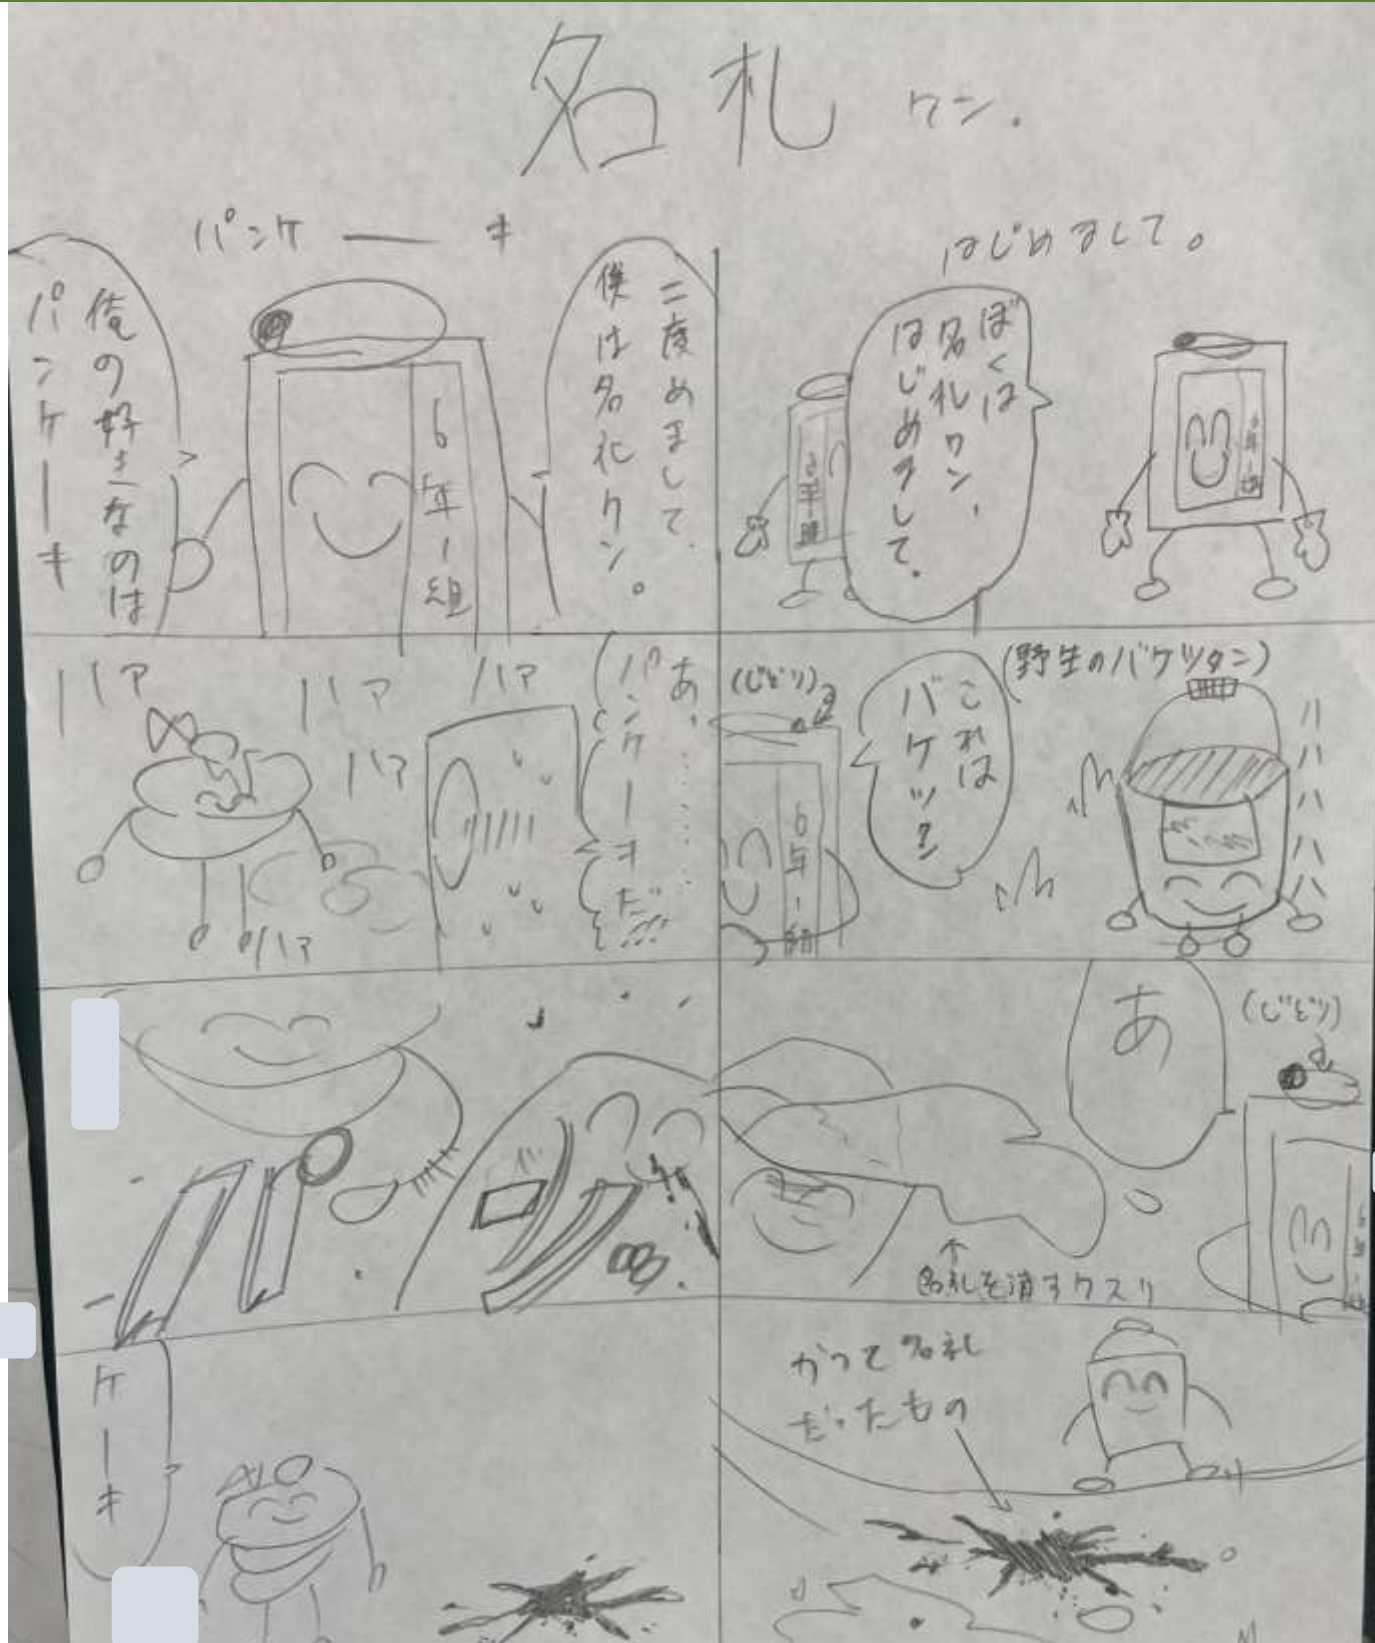 名札クン.
はじめまして。
ぼくは
名札クン、
はじめまして。
6年1組
(野生のバケツタン)
これは
バケツタン
(じどり)
6年1組
あ
(じどり)
名札を消すクスリ
かつて名札
だったもの
パンケーキ
二度めまして、
僕は名札クン。
6年1組
俺の好きなのは
パンケーキ
あ、……
パンケーキだ!!!
ハァ
ハァ
ハァ
ハァ
ハァ
ケーキ